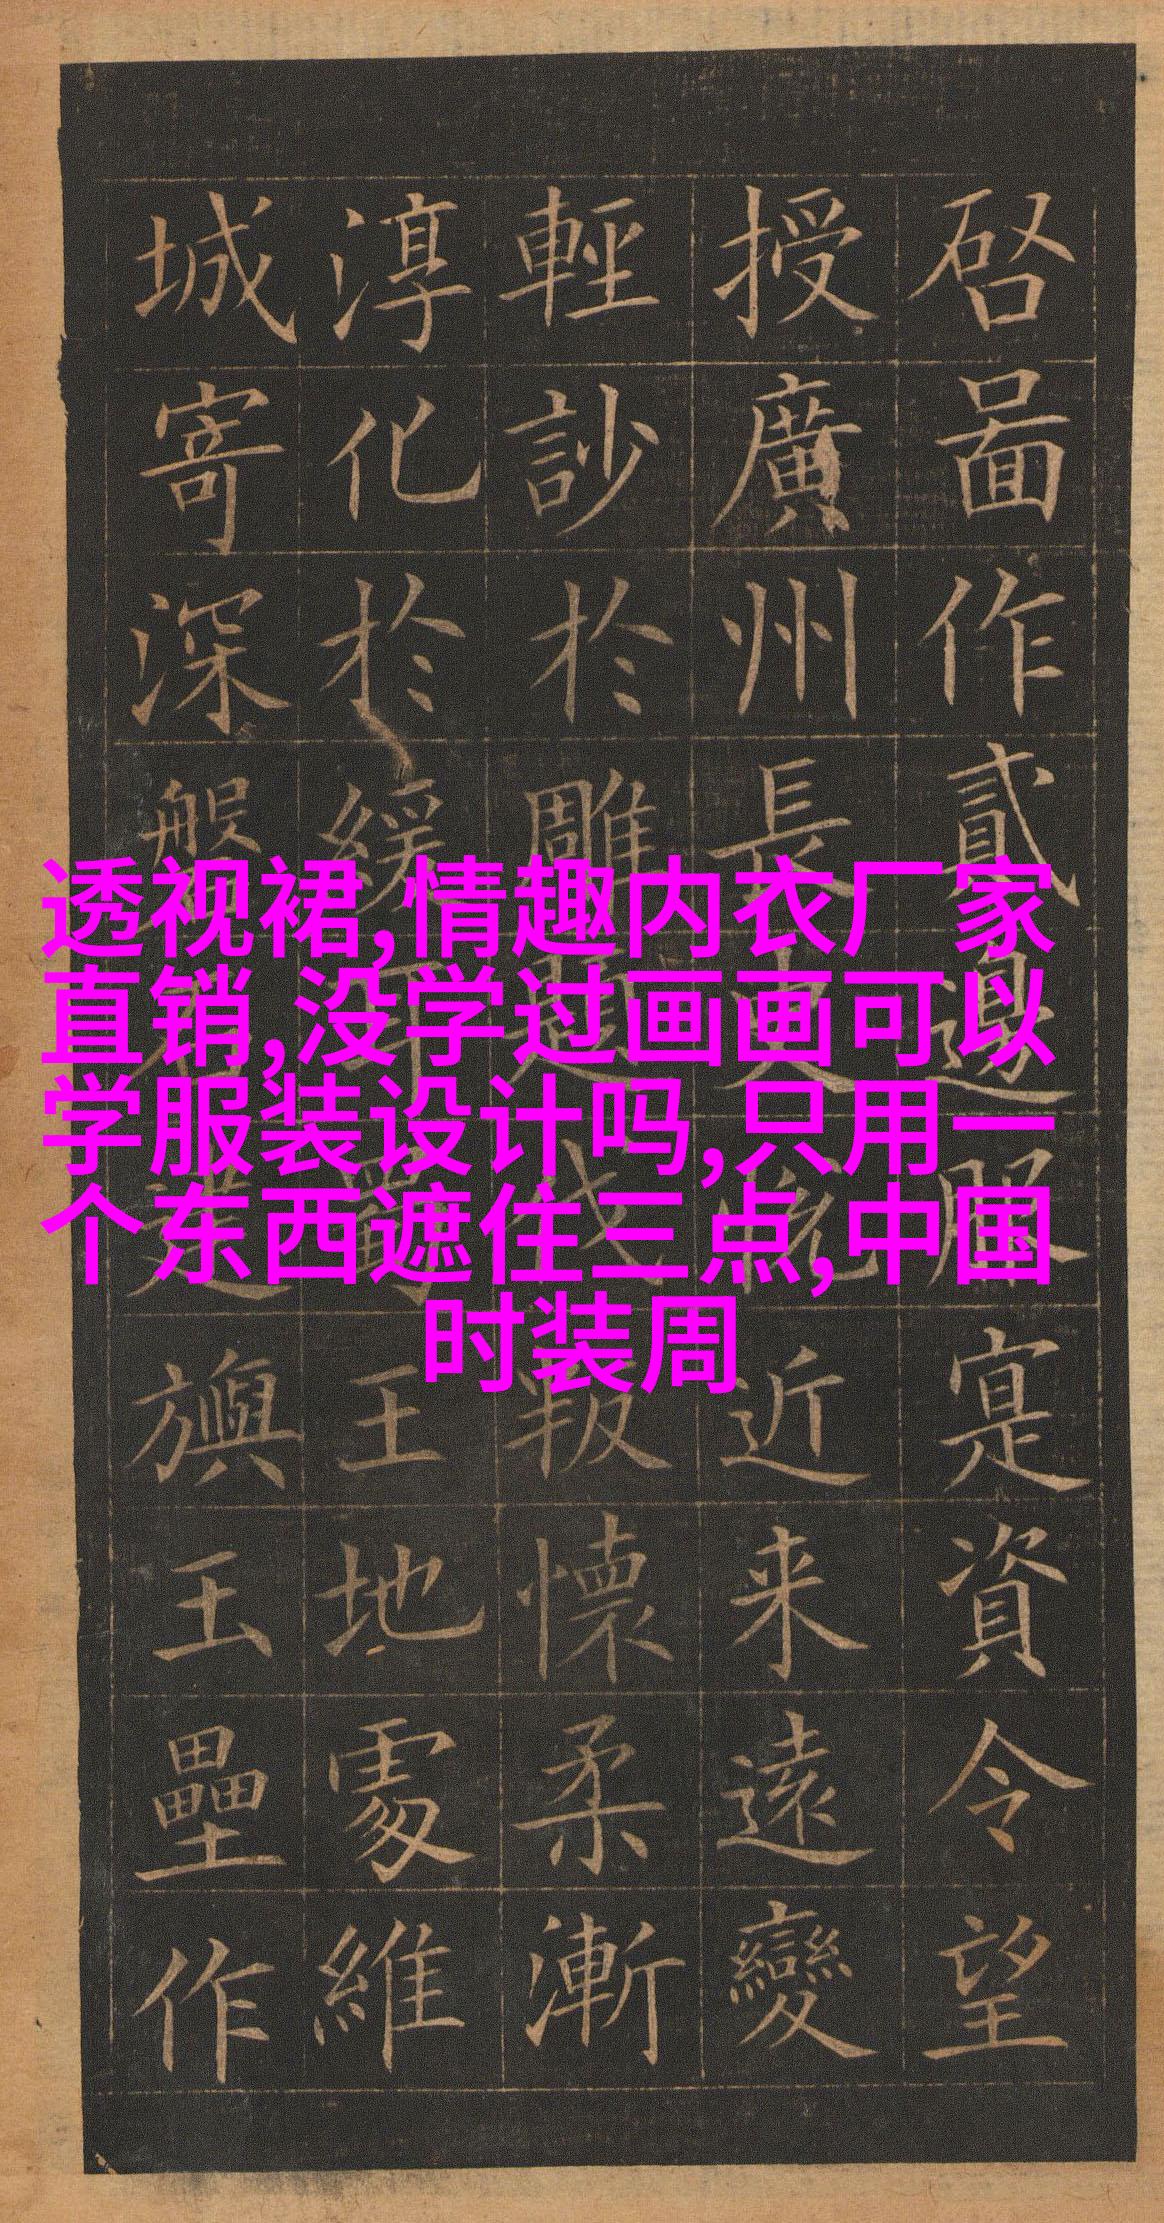 啓啚作貳邊服寔資令望
授廣州長史悅近来遠變
輕訬於雕題伐叛懷柔漸
淳化於緩耳蜀王地處維
城寄深般石建旟玉壘作
透视裙,情趣内衣厂家
直销,没学过画画可以
学服装设计吗,只用一
个东西遮住三点,中国
时装周